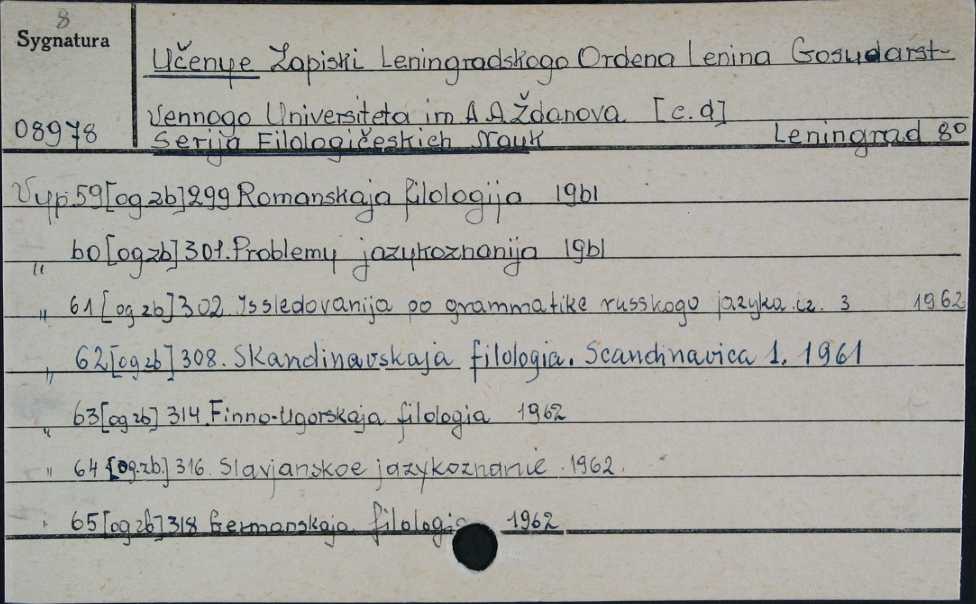 8
Sygnatura
08978
Učenye Zapiski Leningradskogo Ordena Lenina Gosudarst-
vennogo Universiteta im A A Ždanova. [c.d]
Serija Filologičeskich Nauk Leningrad 8°
Vyp. 59 [og zb] 299 Romanskaja filologija 1961
" 60 [og zb] 301. Problemy jazykoznanija 1961
" 61 [og zb] 302. Issledovanija po grammatike russkogo jazyka. cz. 3 1962
" 62 [og zb] 308. Skandinavskaja filologia. Scandinavica 1. 1961
" 63 [og zb] 314. Finno-Ugorskaja filologia 1962
" 64 [og. zb.] 316. Slavjanskoe jazykoznanie. 1962.
" 65 [og zb] 318 Germanskaja filologia 1962